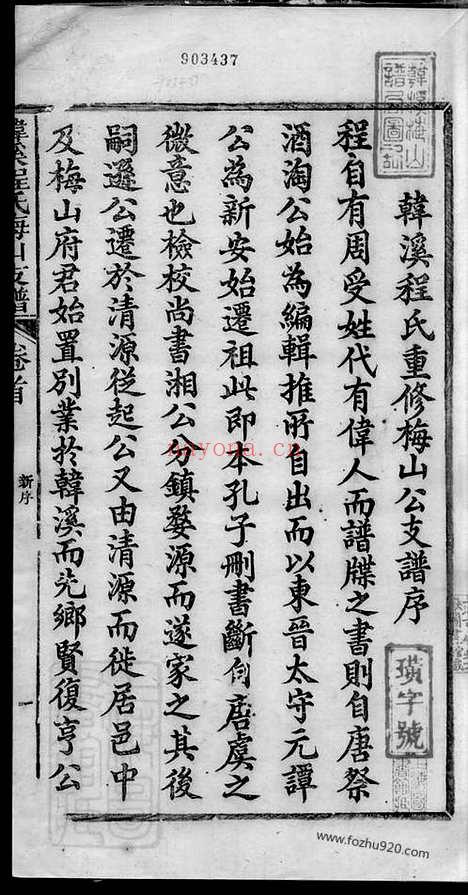 903437
韓溪梅山
譜局圖記
韓溪程氏重修梅山公支譜序
程自有周受姓代有偉人而譜牒之書則自唐祭
酒淘公始為編輯推所自出而以東晉太守元譚
公為新安始遷祖此即本孔子刪書斷自唐虞之
微意也檢校尚書湘公分鎮婺源而遂家之其後
嗣遜公遷於清源從起公又由清源而徙居邑中
及梅山府君始置別業於韓溪而先鄉賢復亨公
璜字號
韓溪程氏梅山支譜
卷首
新序
一
nayona.cn
www.fozhu920.com